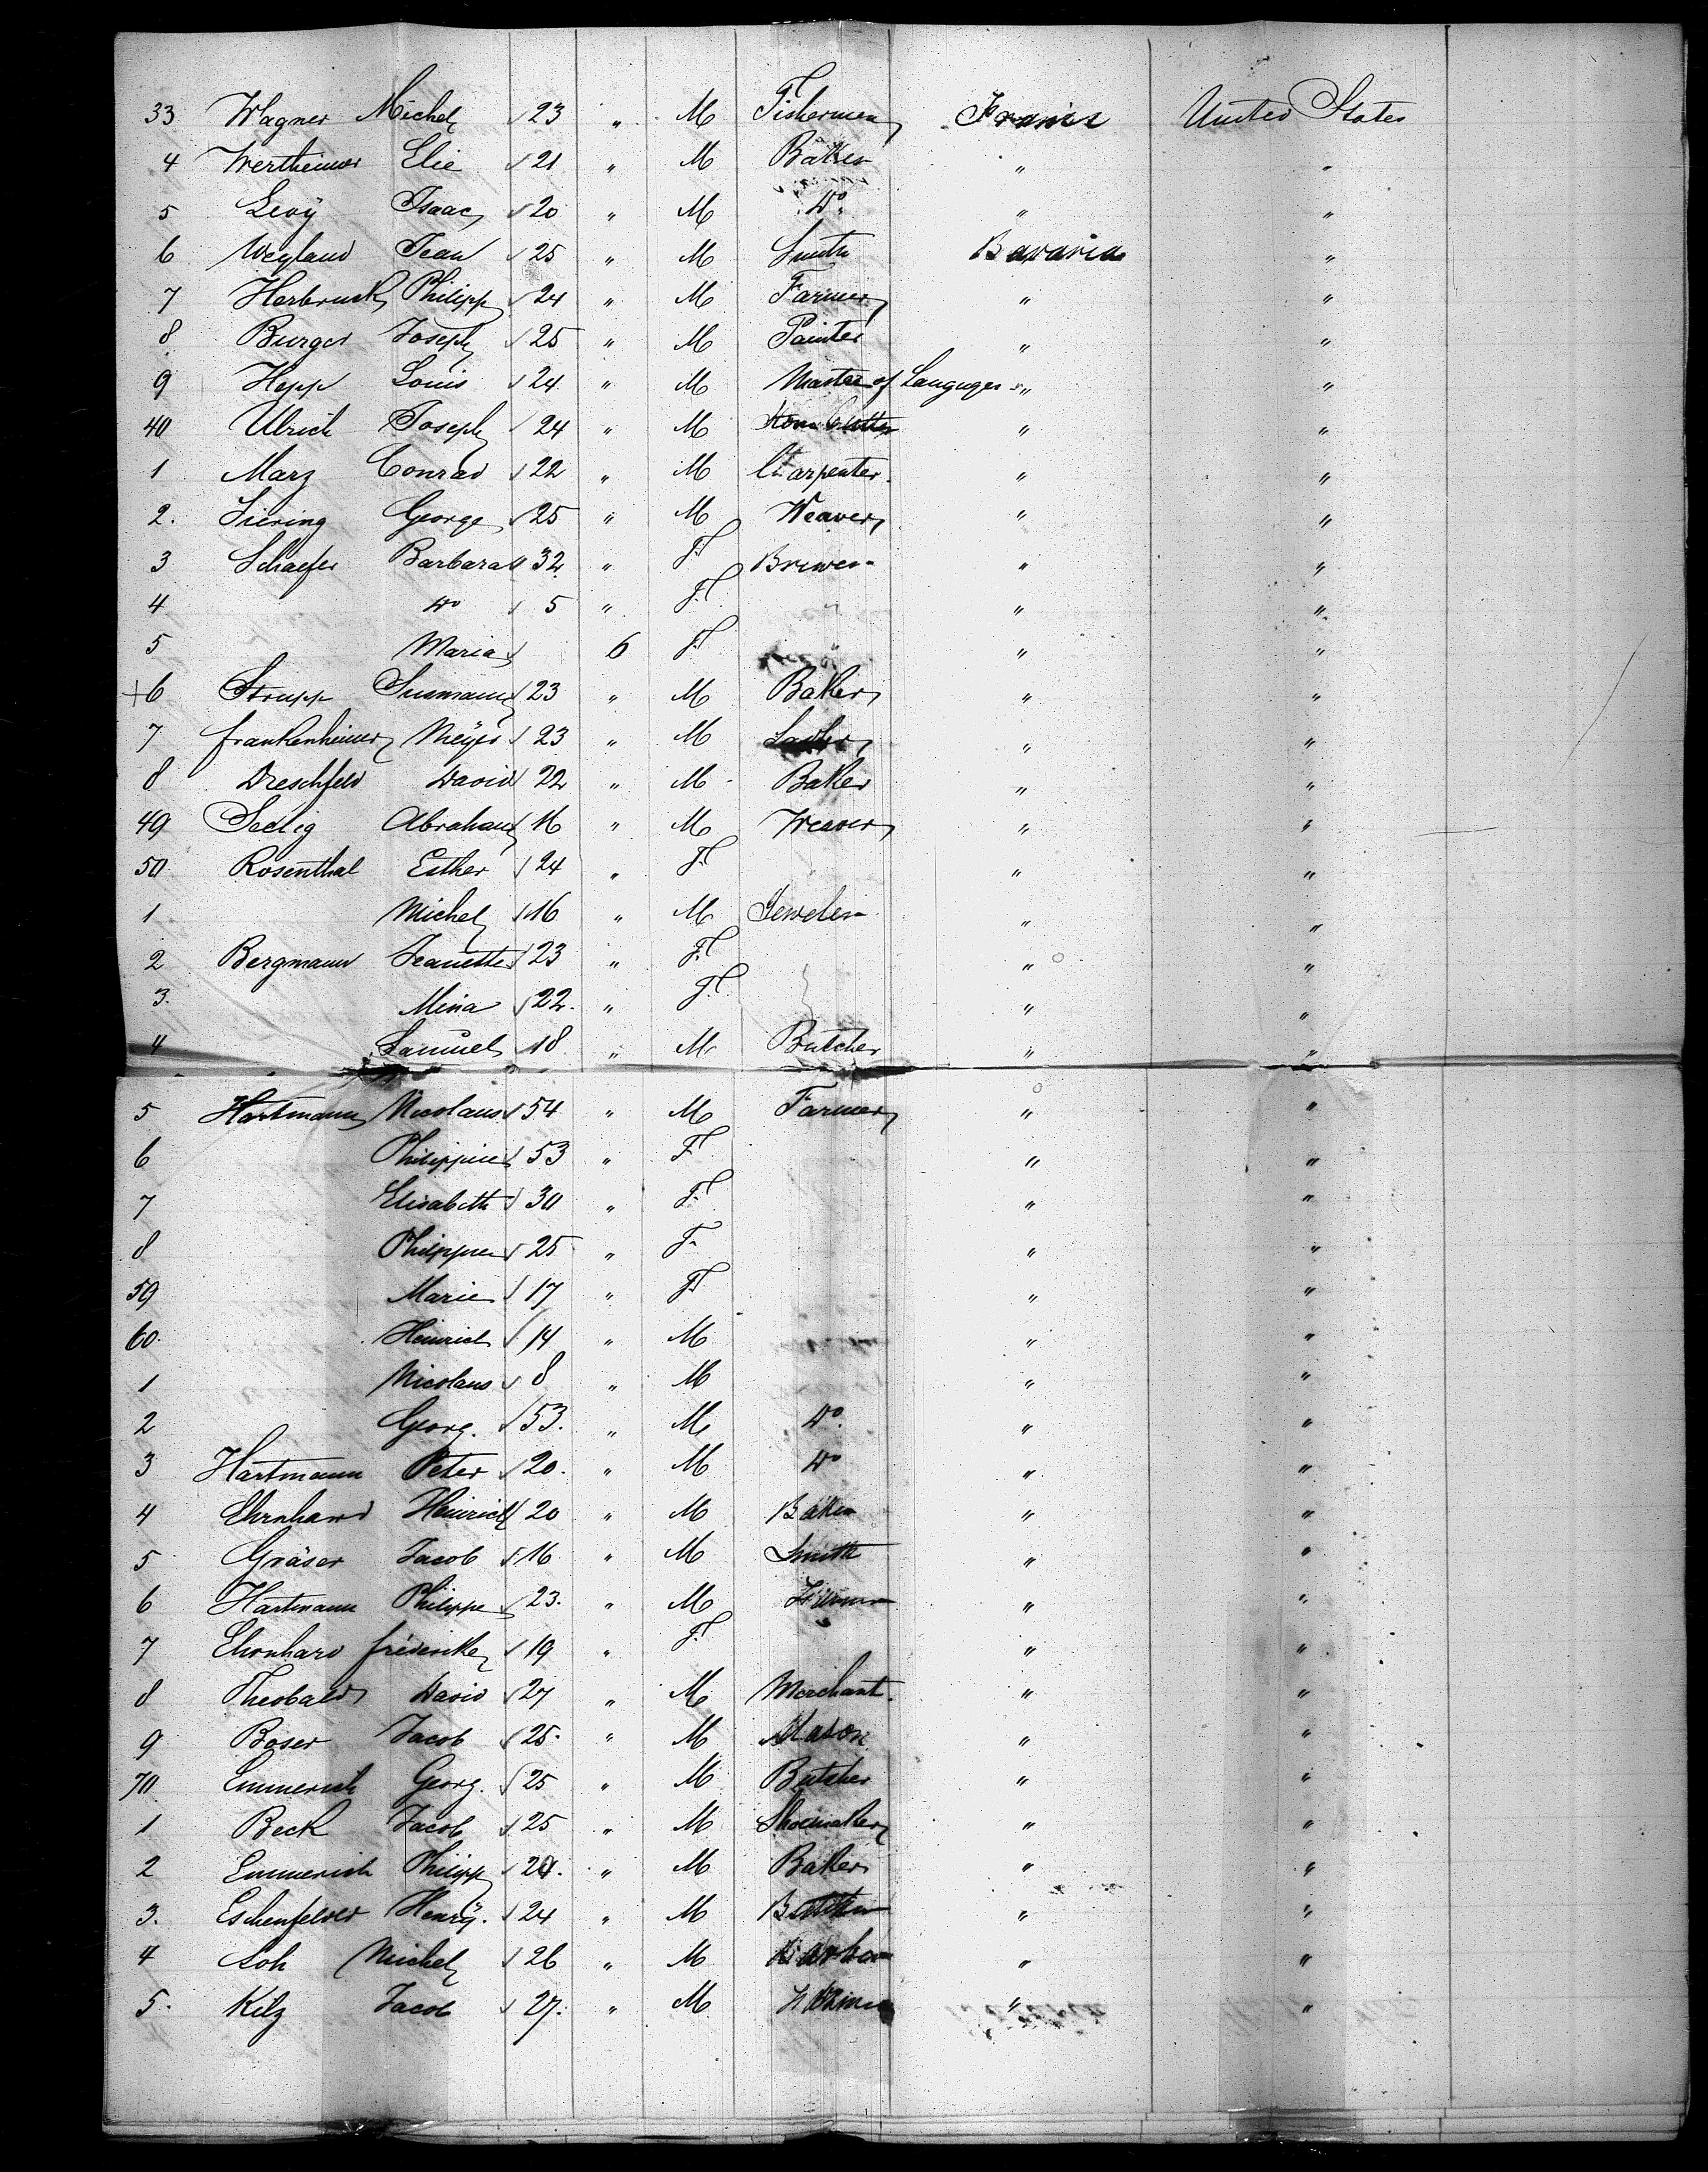 33 Wagner Michel 23 " M Fishermen France United States
4 Wertheimer Elie 21 " M Baker " "
5 Levÿ Isaac 20 " M Do " "
6 Weyland Jean 25 " M Smith Bavaria "
7 Herbruck Philipp 24 " M Farmer " "
8 Burger Joseph 25 " M Painter " "
9 Hepp Louis 24 " M Master of Languages " "
40 Ulrich Joseph 24 " M " "
1 Marz Conrad 22 " M Carpenter. " "
2. George 25 " M Weaver " "
3 Schaefer Barbara 32 " F Brewer " "
4 Do 5 " F " " "
5 Maria 6 F " " "
+6 Strupp Susmann 23 " M Baker " "
7 Frankenheimer Meÿer 23 " M " "
8 Dreschfeld David 22 " M Baker " "
49 Seelig Abraham 16 " M Weaver " "
50 Rosenthal Esther 24 " F " "
1 Michel 16 " M Jeweler " "
2 Bergmann Jeanette 23 " F " "
3. Mina 22. " F " "
4 Samuel 18 " M Butcher " "
5 Hartmann Nicolaus 54 " M Farmer " "
6 Philippine 53 " F " "
7 Elisabeth 30 " F " "
8 Philippine 25 " F " "
59 Marie 17 " F " "
60. Heinrich 14 " M " "
1 Nicolaus 8 " M " "
2 Georg. 53. " M Do. " "
3 Hartmann Peter 20. " M Do " "
4 Ehrnhard Heinrich 20 " M Baker " "
5 Gräser Jacob 16 " M Smith " "
6 Hartmann Philippe 23. " M " "
7 Ehrnhard fréderike 19 " F " "
8 Theobald David 27 " M Merchant. " "
9 Boser Jacob 25. " M Mason " "
70. Emmerich Georg. 25 " M Butcher " "
1 Beck Jacob 25 " M Shoemaker " "
2 Emmerich Philipp 24. " M Baker " "
3. Eschenfelder Henrÿ. 24 " M " "
4 Michel 26 " M " "
5. Kilz Jacob 27. " M " "